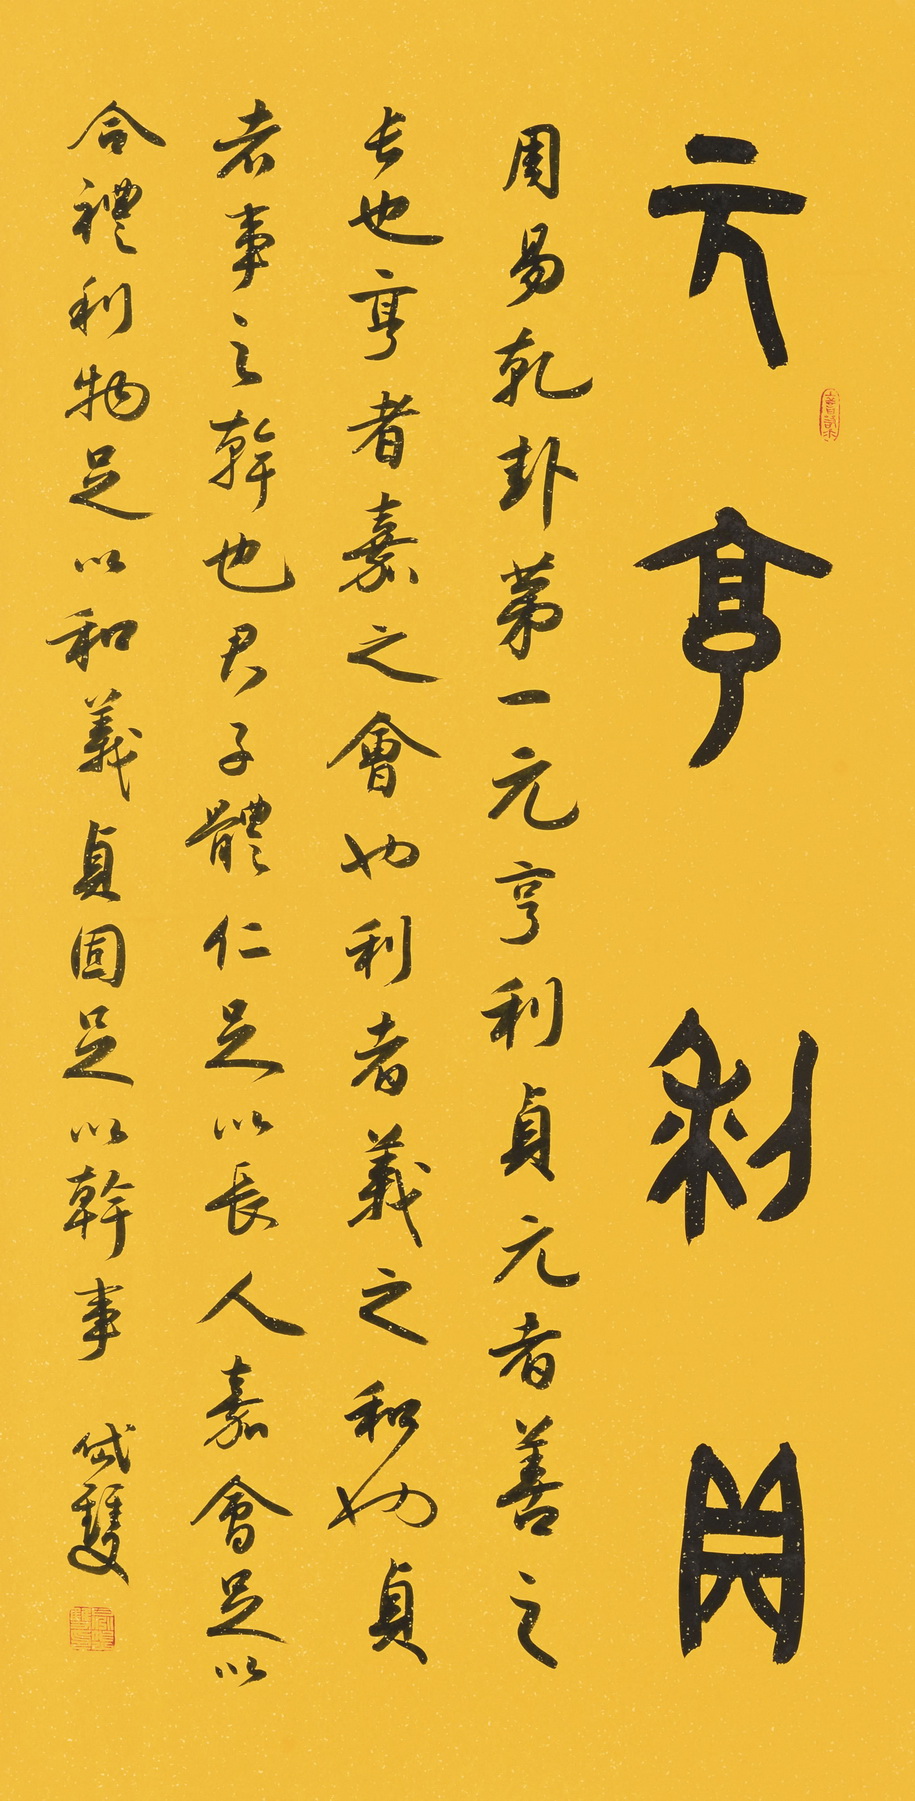 元亨利貞
周易乾卦第一元亨利貞元者善之
長也亨者嘉之會也利者義之和也貞
者事之幹也君子體仁足以長人嘉會足以
合禮利物足以和義貞固足以幹事